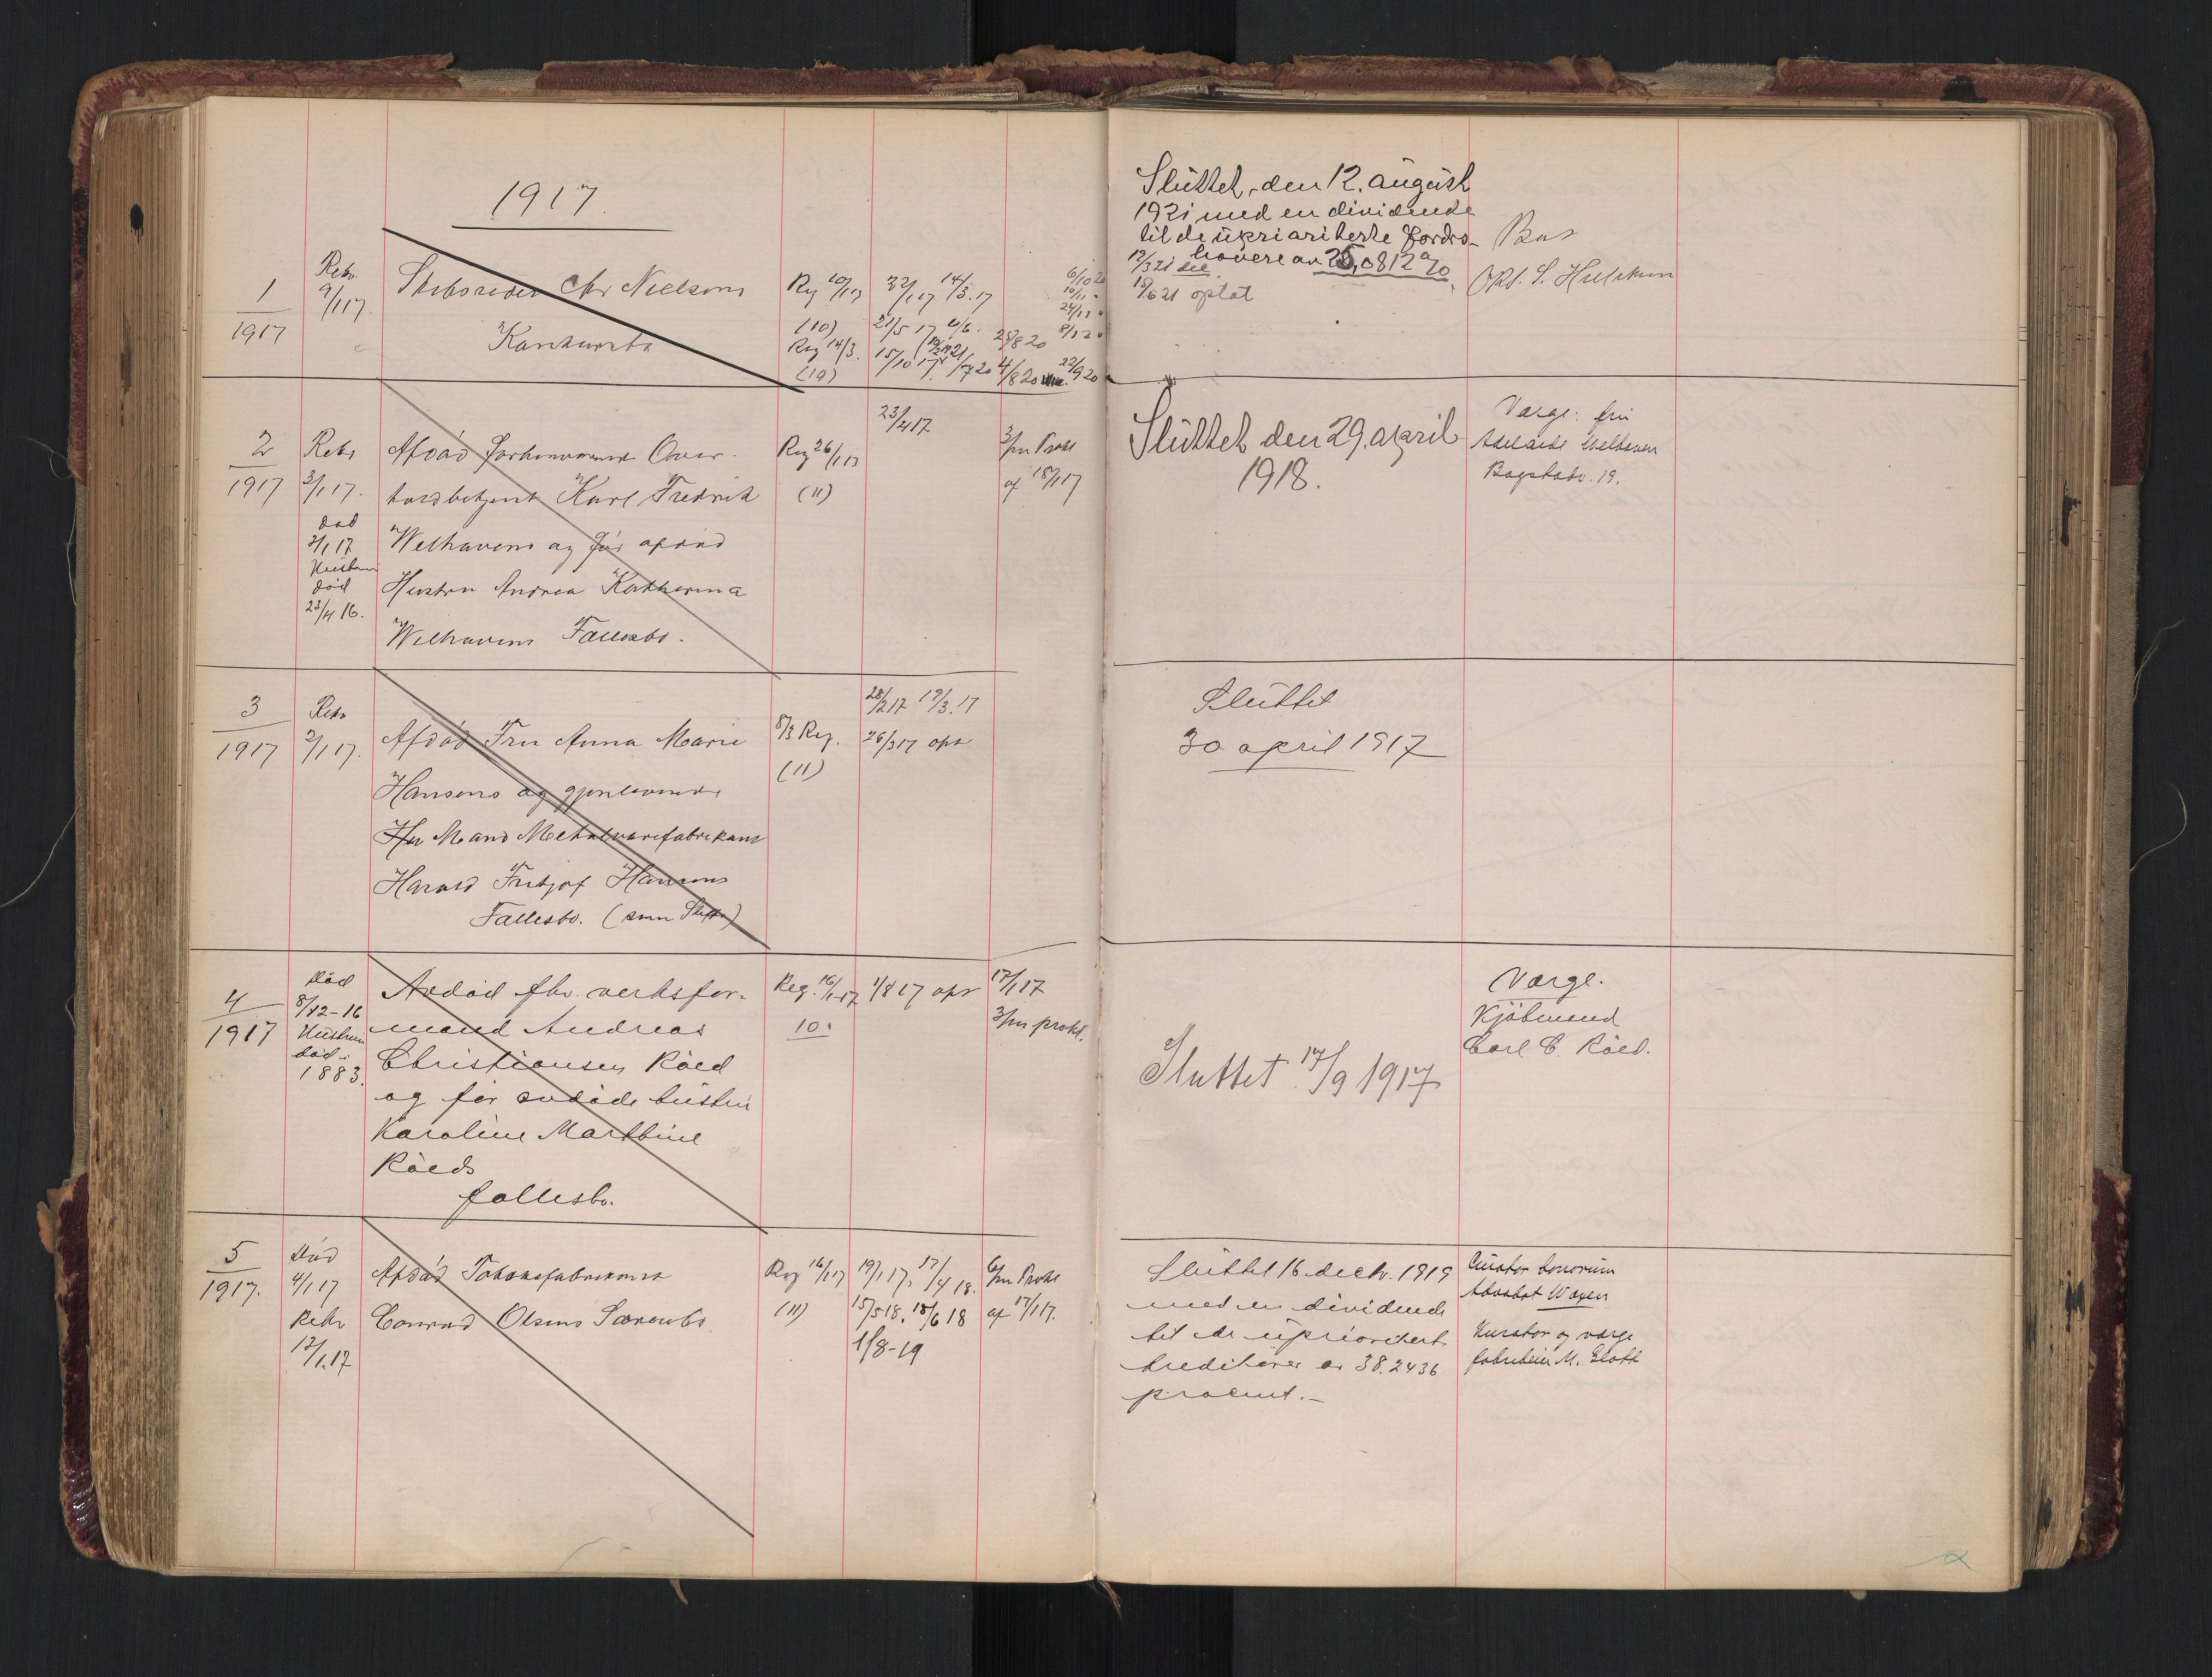 1917.
1
1917
Rekv
9/1 17.
Skibsreder Chr Nielsens
Konkursbo
Reg 10/1 17
(10)
Reg 14/3.
(19)
14/3.17
21/5 17
15/10 17
25/8 20
4/8 20
22/9 20
6/10 20
Sluttet, den 12. august
1921 med en dividende
til de uprioriterte fordrs-
havere av 25,0812 %
17/3 21
15/6 21 optat
Bos
2
1917
Rekv
3/1 17.
død
2/1 17
Hustru
død
23/4 16.
Afdød forhenværende Over-
Karl Fredrik
Welhavens og før afdød
Hustru Andrea Katherina
Welhavens Fællesbo.
Reg 26/1 17
(11)
23/4 17
3/m Prokl
af 18/1 17
Sluttet den 29. april
1918.
Værge: fru
Welhaven
Bogstadv. 19.
3
1917
Rekv
2/1 17.
Afdød Fru Anna Marie
Hansens og gjenlevende
Mand Metalvarefabrikant
Harald Fritjof Hansens
Fællesbo. (som Skifte)
8/3 Reg.
(11)
28/2 17 19/3.17
26/3 17 ops
Sluttet
30 april 1917
4
1917
Død
8/12-16
Hustru
død
1883.
Avdød fhv. verksfor-
mand Andreas
Christiansen Röed
og før avdøde hustru
Karoline Marthine
Röeds
fællesbo.
Reg. 16/1-17
10.
1/8 17 ops
17/1 17
3/m prokl.
Sluttet 17/9 1917
Værge.
Kjöbmand
Carl C. Röed.
5
1917.
Død
4/1 17
Rekv
12/1.17
Afdød Tobaksfabrikant
Conrad Olsens Særbo
Reg 16/1 17
(11)
19/1 17, 17/4 18.
15/5 18. 18/6 18
1/8-19
6/m Prokl
af 17/1 17.
Sluttet 16 decbr. 1919
med en dividende
til de uprioritert
kreditorer av 38.2436
procent.-
Curator bonorum
Advokat
Kurator og værge
M.